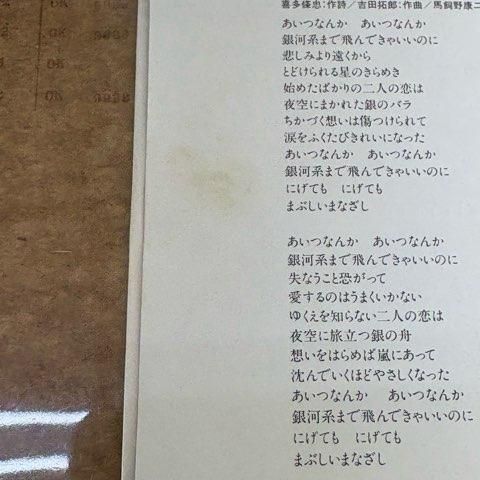 喜多條忠:作詩/吉田拓郎:作曲/馬飼野康二
あいつなんか　あいつなんか
銀河系まで飛んできゃいいのに
悲しみより遠くから
とどけられる星のきらめき
始めたばかりの二人の恋は
夜空にまかれた銀のバラ
ちかづく想いは傷つけられて
涙をふくたびきれいになった
あいつなんか　あいつなんか
銀河系まで飛んできゃいいのに
にげても　にげても
まぶしいまなざし
あいつなんか　あいつなんか
銀河系まで飛んできゃいいのに
失なうこと恐がって
愛するのはうまくいかない
ゆくえを知らない二人の恋は
夜空に旅立つ銀の舟
想いをはらめば嵐にあって
沈んでいくほどやさしくなった
あいつなんか　あいつなんか
銀河系まで飛んできゃいいのに
にげても　にげても
まぶしいまなざし